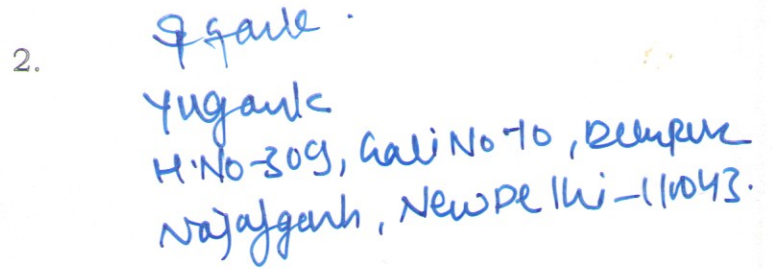 2.
Yugank
H.No-309, Gali No-10,
Najafgarh, New Delhi-110043.